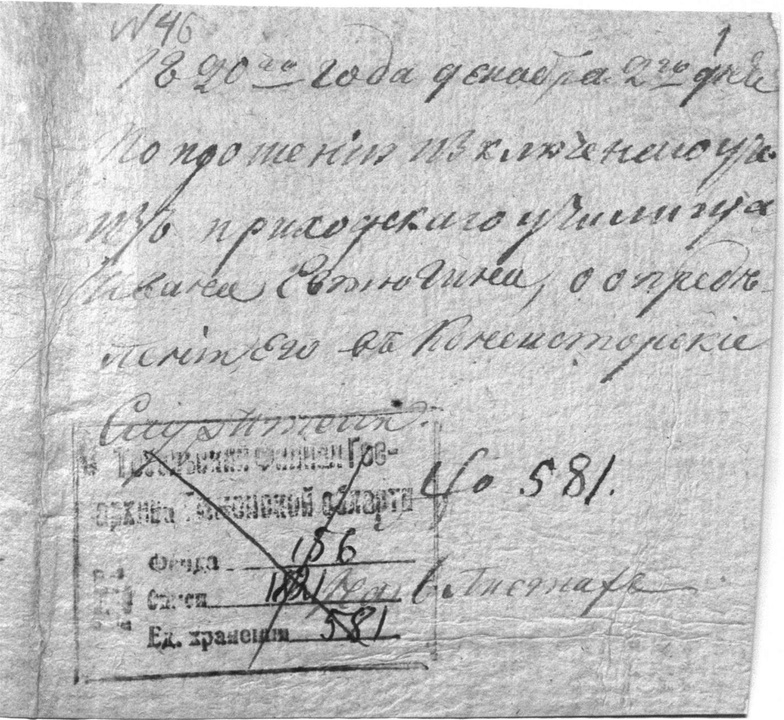 № 46
1
1820го года декабря 2го дня
По прошенію изключенаго уче
изъ приходскаго училища
Ивана Евтюгина, о опредѣ-
леніи Его въ Консисторскіе
Служители.
Тобольский филиал Гос-
архива Тюменской области
№ 581.
Фонда 156
Описи
Ед. хранения 581
листахъ